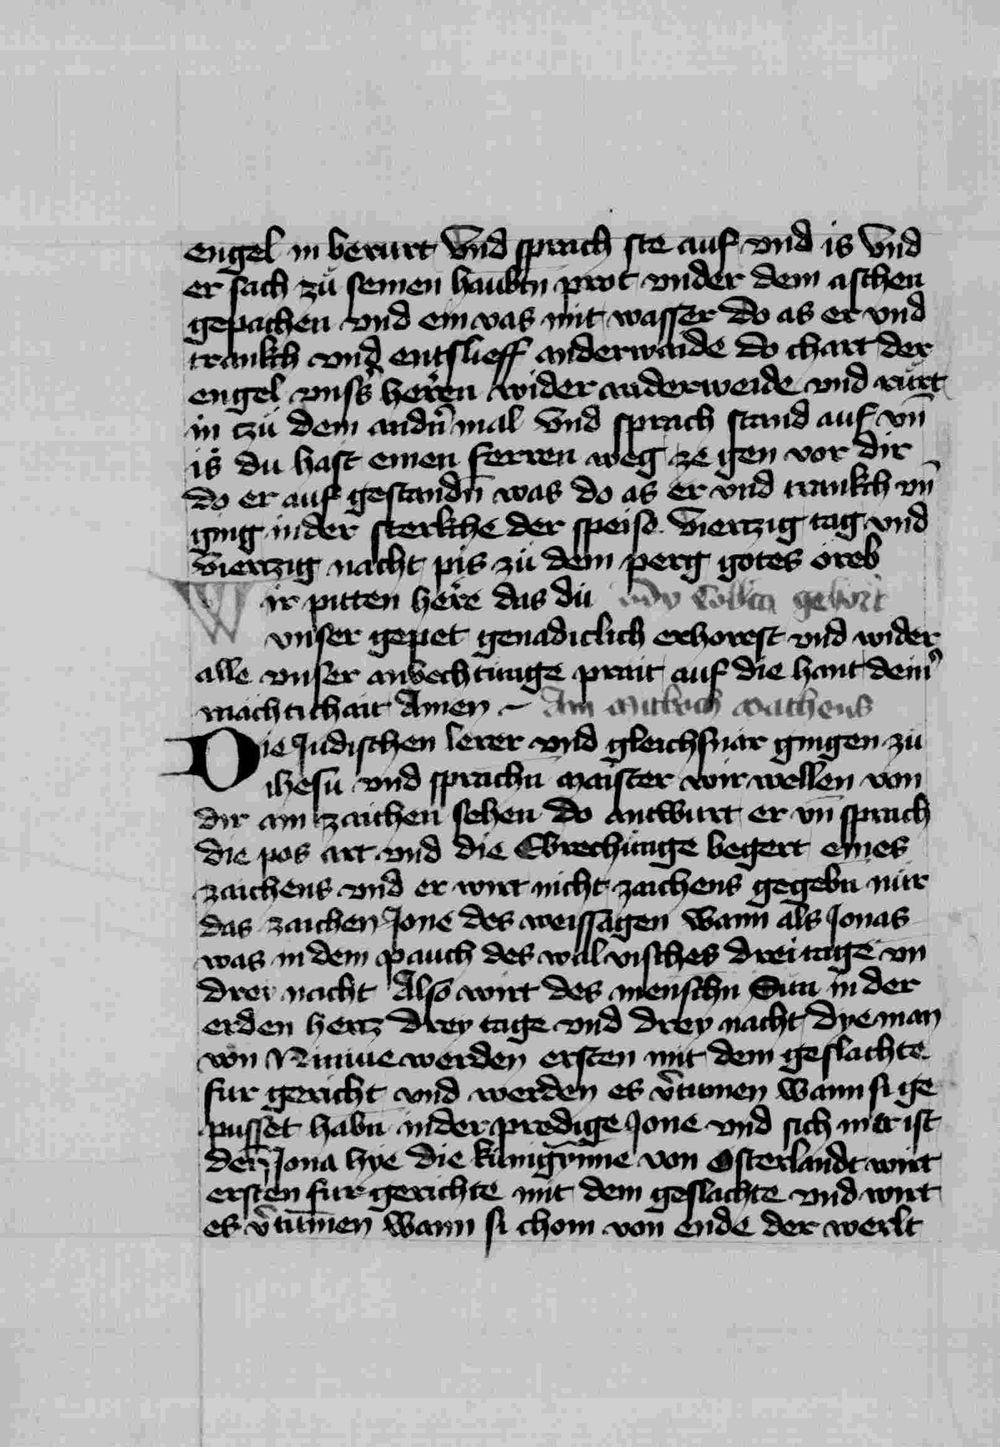 engel in berurt Vnd sprach ste auf vnd is Vnd
er sach zů seinen haubtn̄ prot vnder dem aschen
gepachen vnd ein vas mit wasser do as er vnd
trankch vnd entslieff anderwaide do chart der
engel vnss heren wider anderweide vnd rurt
in czů dem andn̄ mal Vnd sprach stand auf vn̄
is du hast einen ferren weg ze gen vor dir
do er auf gestandn̄ was do as er vnd trankch vn̄
ging in der sterkche der speise viertzig tag vnd
viertzig nacht pis zů dem perg gotes oreb
Wir pitten here das du
vnser gepet genadiclich erhorest vnd wider
alle vnser anvechtunge prait auf die hant dein̄
machtichait Amen Am mitboch
Die Judischen lerer vnd gleichsnar gingen zů
ihesu vnd sprachn̄ maister wir wellen von
dir ain zaichen sehen do antwurt er vn̄ sprach
die pos art vnd die Ebrechunge begert eines
zaichens vnd er wirt nicht zaichens gegebn̄ nur
das zaichen Jone des weissagen wann als Jonas
was in dem pauch des walvisches drei tage vn
drei nacht Also wirt des menschn̄ Sun in der
erden hertz drey tage vnd drey nacht dye man
von Niniue werden ersten mit dem geslachte
fur gericht vnd werden es v̄tumen wann si ge
pusset habn̄ in der predige Jone vnd sich mer ist
denn Jona hye die kunigynne von Osterlandt wirt
ersten fur gerichte mit dem geslachte vnd wirt
es v̄tumen wann si chom von ende der werlt